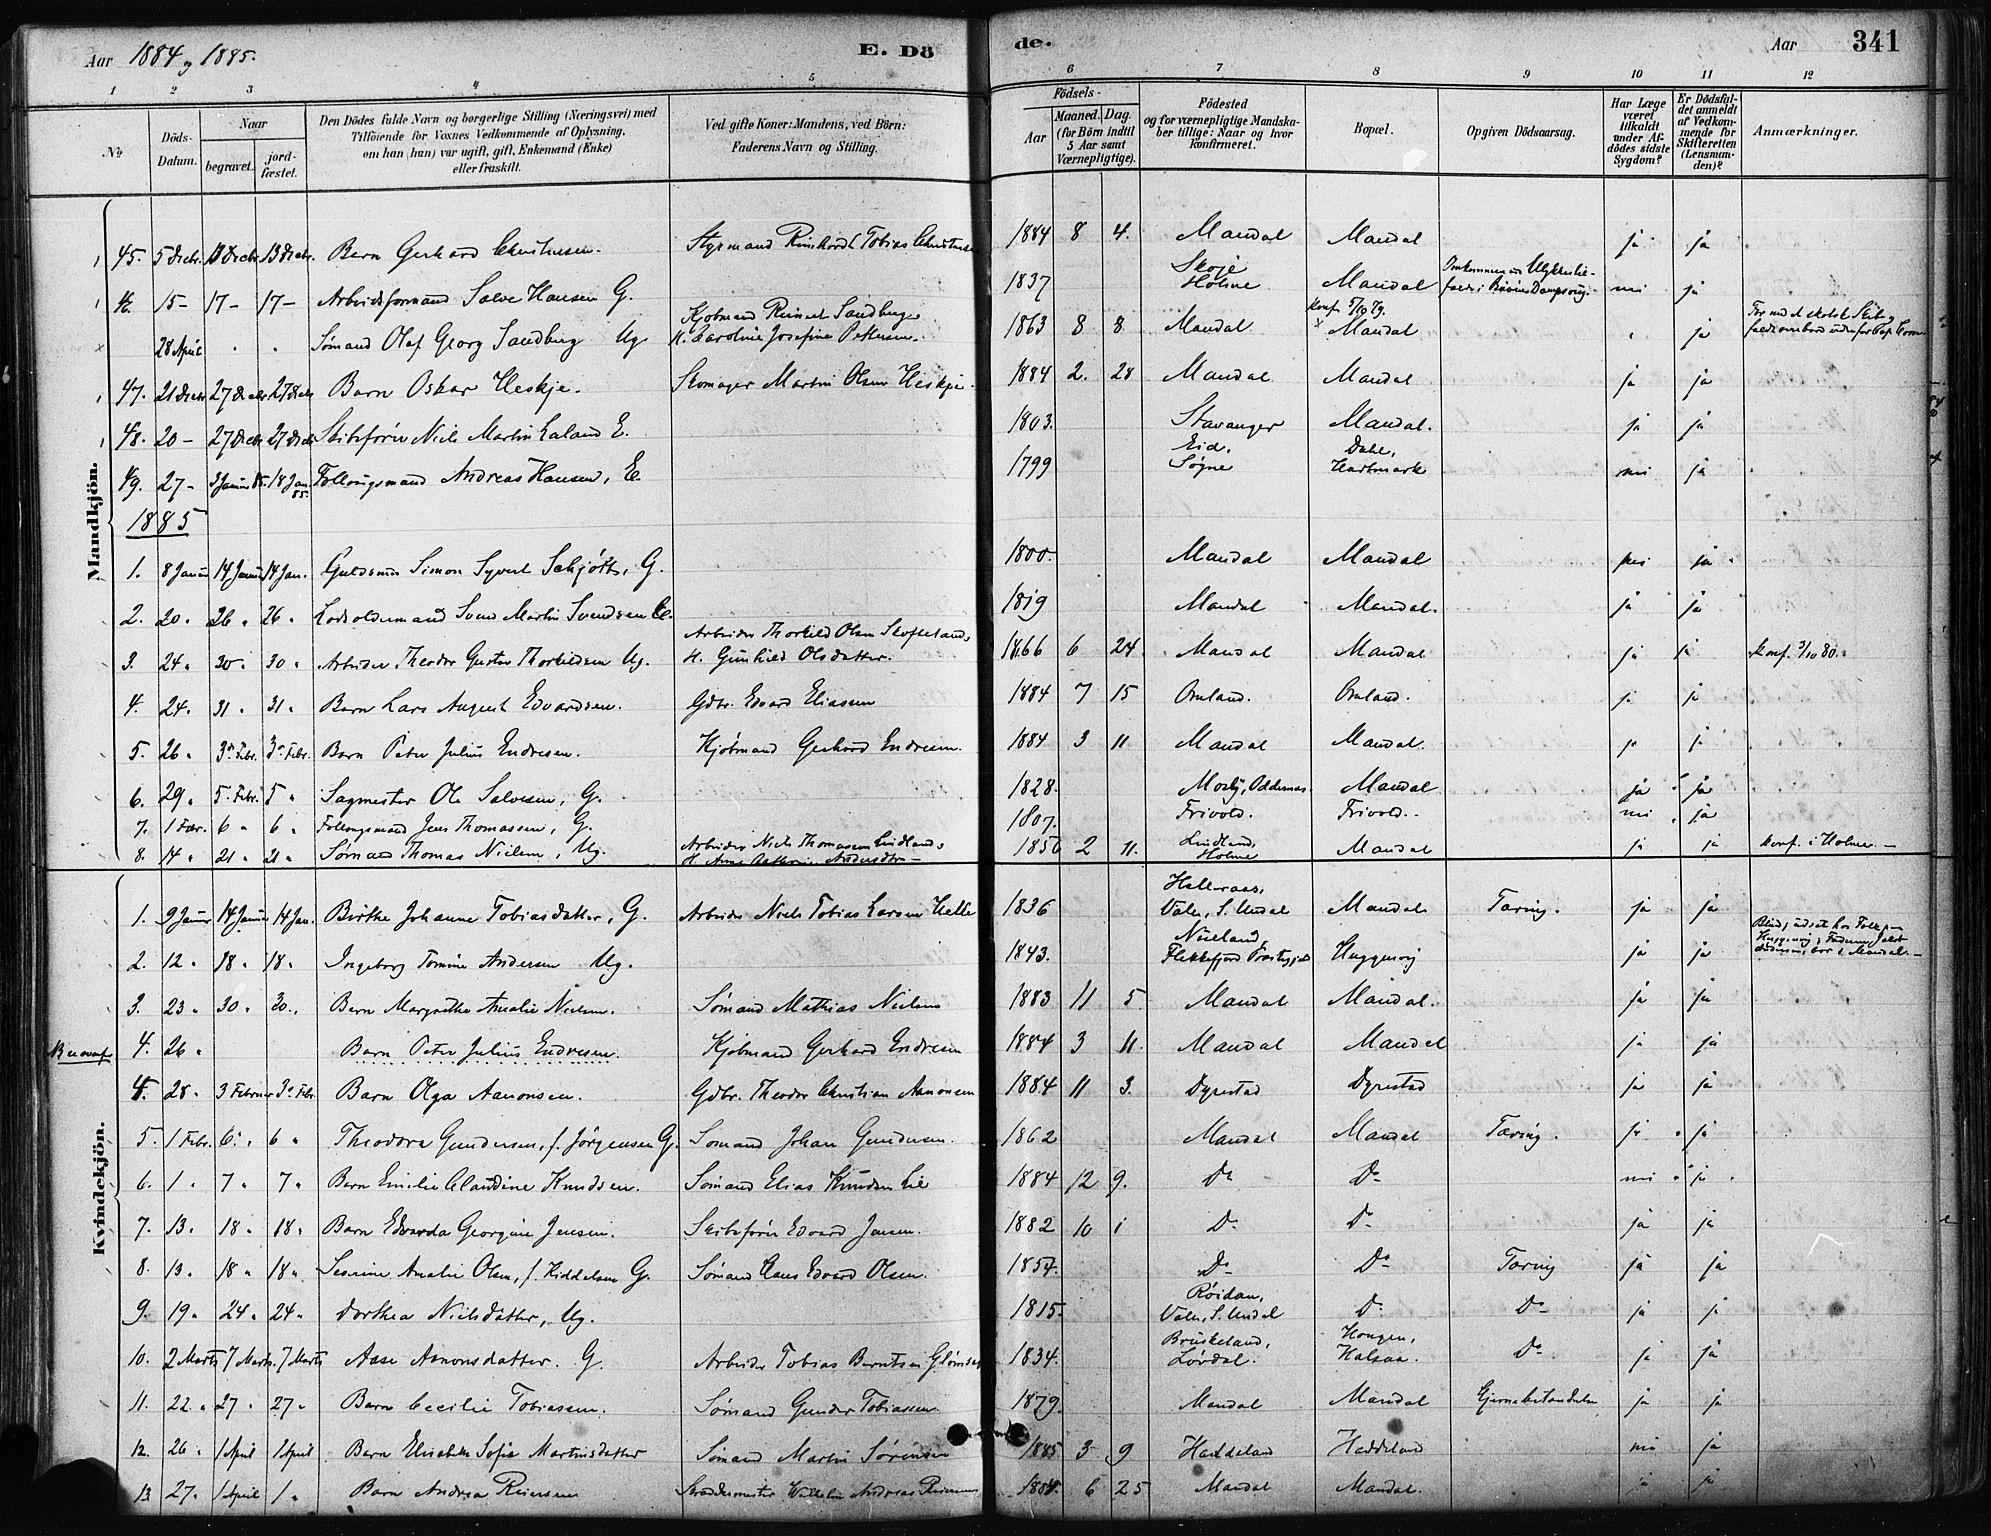 Aar 1884 og 1885.
E. Dö
de.
Aar
341
1 2 3 4 5 6 7 8 9 10 11 12
No
Döds-Datum.
Naar
begravet.
jord-fæstet.
Den Dödes fulde Navn og borgerlige Stilling (Næringsvei) med
Tilföiende for Voxnes Vedkommende af Oplysning,
om han (hun) var ugift, gift, Enkemand (Enke)
eller fraskilt.
Ved gifte Koner: Mandens, ved Börn:
Faderens Navn og Stilling.
Födsels-
Aar
Maaned. Dag.
(for Börn indtil
5 Aar samt
Værnepligtige).
Födested
og for værnepligtige Mandska-
ber tillige: Naar og hvor
konfirmeret.
Bopæl.
Opgiven Dödsaarsag.
Har Læge
været
tilkaldt
under Af-
dödes sidste
Sygdom?
Er Dödsfal-
det anmeldt
af Vedkom-
mende for
Skifteretten
(Lensman-
den)?
Anmærkninger.
Mandkjön.
45. 5 Decbr. 13 Decbr. 13 Decbr. Barn Gerhard Christensen. Styrmand Tobias Christensen 1884 8 4. Mandal Mandal ja ja
46. 15 - 17 - 17 - Arbeidsformand Salve Hansen G. 1837 Holme Mandal nei ja
28 April Sømand Olaf Georg Sandberg Ug. Kjøbmand Sandberg H. Caroline Josefine Pettersen. 1863 8 8 Mandal Mandal ja
47. 21 Decbr 27 Decbr 27 Decbr Barn Oskar Heskje. Skomager Martin Olsen Heskje. 1884 2. 28 Mandal Mandal ja ja
48. 20 - 27 Decbr 27 Decbr Skibsfører Niels Martin Laland E. 1803. Stavanger Mandal. ja ja
49. 27 - 3 Januar 85. 18 Jan. 85. Follougsmand Andreas Hansen, E. 1799 Eid, Søgne Dale, Harkmark nei ja
1885
1. 8 Januar 14 Januar 14 Jan. Guldsmed Simon Syvert Schjøtt, G. 1800. Mandal Mandal nei ja
2. 20. 26 " 26 " Lodsoldermand Svend Martin Svendsen E. 1819 Mandal Mandal. ja ja
3. 24 " 30 " 30 " Arbeider Theodor Gustav Thorkildsen Ug. Arbeider Thorkild Olsen H. Gunhild Olsdatter. 1866 6 24 Mandal Mandal ja ja Konf. 3/10 80.
4. 24. 31 " 31 " Barn Lars August Edvardsen. Gdbr. Edvard Eliassen 1884 7 15 Omland. Omland. ja ja
5. 26 " 3 Febr. 3 Febr. Barn Peter Julius Endresen. Kjøbmand Gerhard Endresen. 1884 3 11 Mandal Mandal. ja ja
6. 29 " 5. Febr. 5 " Sagmester Ole Salvesen, G. 1828. Mosby, Oddernæs Mandal ja ja
7. 1 Febr. 6 " 6 " Follougsmand Jens Thomassen, G. 1807. Frivold. Frivold. nei ja
8. 14 " 21 " 21 " Sømand Thomas Nielsen, Ug. Arbeider Niels Thomassen Lindland, H. Anne Andersdtr - 1856 2 11. Lindland, Holme Mandal ja ja Konf. i Holme. -
Kvindekjön.
1. 9 Januar 14 Januar 14 Jan. Birthe Johanne Tobiasdatter, G. Arbeider Niels Tobias Larsen Helle 1836 Valle, S. Undal Mandal Tæring. ja ja
2. 12 " 18 " 18 " Ingeborg Tomine Andersen Ug. 1843. Flekkefjord Præstegjeld ja ja
3. 23 " 30 " 30. Barn Margrethe Amalie Nielsen. Sømand Mathias Nielsen 1883 11 5 Mandal Mandal. ja ja
4. 26 " Barn Peter Julius Endresen. Kjøbmand Gerhard Endresen 1884 3 11. Mandal Mandal ja ja
4. 28 " 3 Februar 3 Febr. Barn Olga Aanonsen. Gdbr. Theodor Christian Aanonsen 1884 11 3. Dyrestad Dyrestad ja ja
5. 1 Febr. 6. " 6 " Theodora Gundersen, f. Jørgensen G. Sømand Johan Gundersen. 1862 Mandal Mandal Tæring. ja ja
6. 1 " 7 " 7 " Barn Emilie Claudine Knudsen. Sømand Elias Knudsen 1884 12 9. Do Do nei ja
7. 13. 18 " 18 " Barn Edvarda Georgine Jensen. Skibsfører Edvard Jensen. 1882 10 1 Do Do ja ja
8. 13. 18 " 18 " Severine Amalie Olsen, f. Kiddelsen G. Sømand Hans Edvard Olsen. 1854. Do Do Tæring ja ja
9. 19 " 24 " 24 " Dorthea Nielsdatter, Ug. 1815. Valle, S. Undal Do Do ja ja
10. 2 Marts 7 Marts 7 Marts Aase Aanonsdatter. G. Arbeider Tobias Berntsen 1834. Do ja ja
11. 22. " 27 " 27 " Barn Cecilie Tobiassen. Sømand Gunder Tobiassen. 1879. Mandal Mandal ja ja
12. 26 " 1 April 1 April Barn Elisabeth Sofie Martinsdatter Sømand Martin Sørensen 1885 3 9 Haddeland Haddeland nei ja
13. 27 " 1 April 1 " Barn Andrea Reiersen Skræddermester Wilhelm Andreas Reiersen 1884. 6 25 Mandal Mandal. ja ja